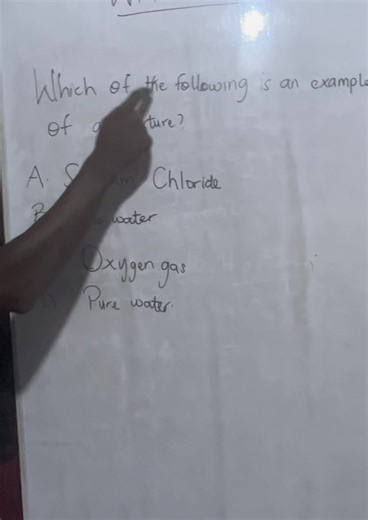 Which of the following is an example
of
A. Chloride
water
Oxygen gas
Pure water.